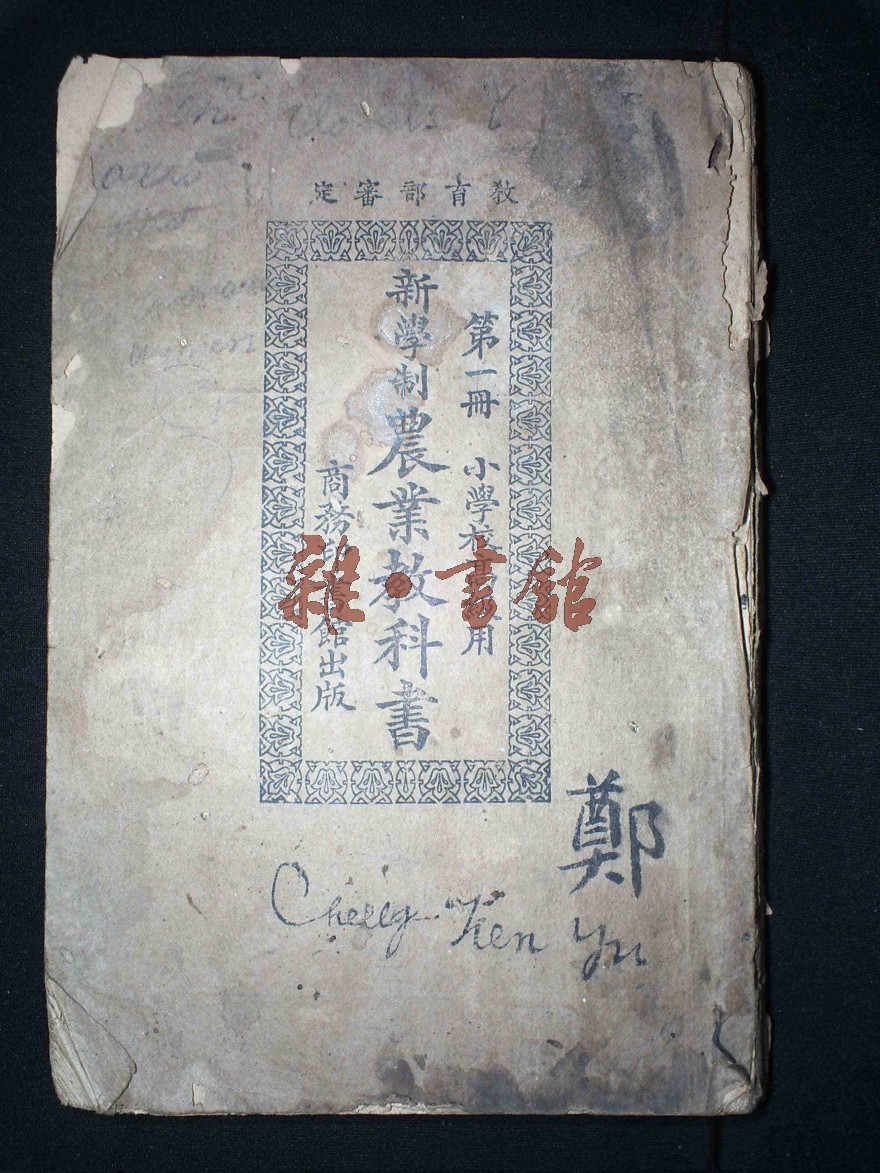 教育部審定
第一冊 小學校高級用
新學制農業教科書
商務印書館出版
雜·書館
鄭
Cheng Ken Yu